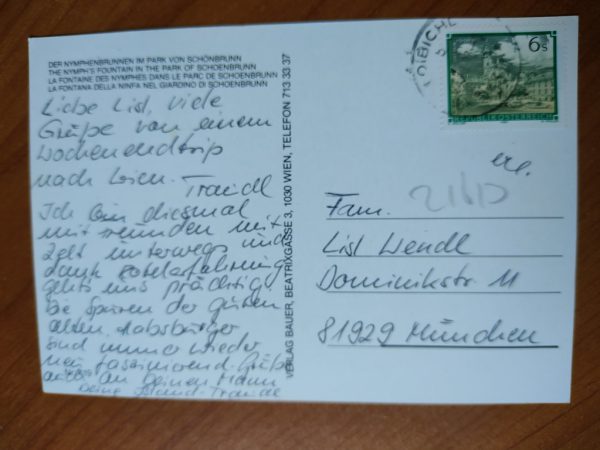 DER NYMPHENBRUNNEN IM PARK VON SCHÖNBRUNN
THE NYMPH'S FOUNTAIN IN THE PARK OF SCHOENBRUNN
LA FONTAINE DES NYMPHES DANS LE PARC DE SCHOENBRUNN
LA FONTANA DELLA NINFA NEL GIARDINO DI SCHOENBRUNN
Liebe Lisl, viele
Grüße von einem
Wochenendtrip
nach Wien. Traudl
Ich bin diesmal
mit Freunden mit
Zelt unterwegs und
dank
gehts uns prächtig.
Die Spuren der guten
alten Habsburger
sind immer wieder
neu faszinierend. Grüße
auch an Deinen Mann
Deine Traudl
VERLAG BAUER, BEATRIXGASSE 3, 1030 WIEN, TELEFON 713 33 37
6 S
REPUBLIK ÖSTERREICH
Fam.
Lisl Wendl
Dominikstr. 11
81929 München